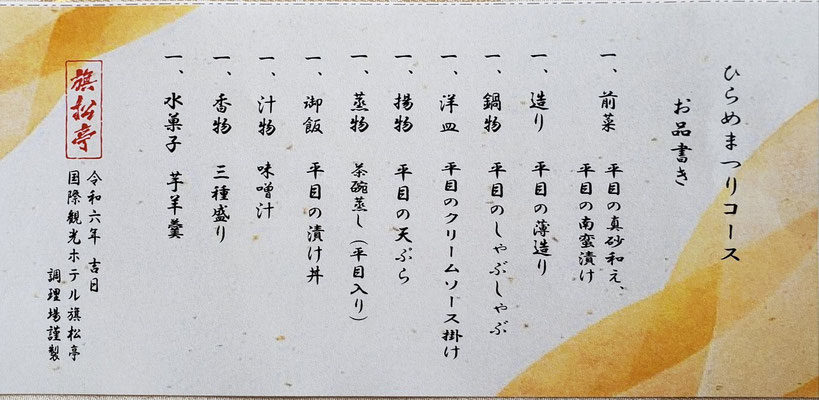 ひらめまつりコース
お品書き
一、前菜　平目の真砂和え、
平目の南蛮漬け
一、造り　平目の薄造り
一、鍋物　平目のしゃぶしゃぶ
一、洋皿　平目のクリームソース掛け
一、揚物　平目の天ぷら
一、蒸物　茶碗蒸し（平目入り）
一、御飯　平目の漬け丼
一、汁物　味噌汁
一、香物　三種盛り
一、水菓子　芋羊羹
令和六年　吉日
国際観光ホテル旗松亭
調理場謹製
旗松亭